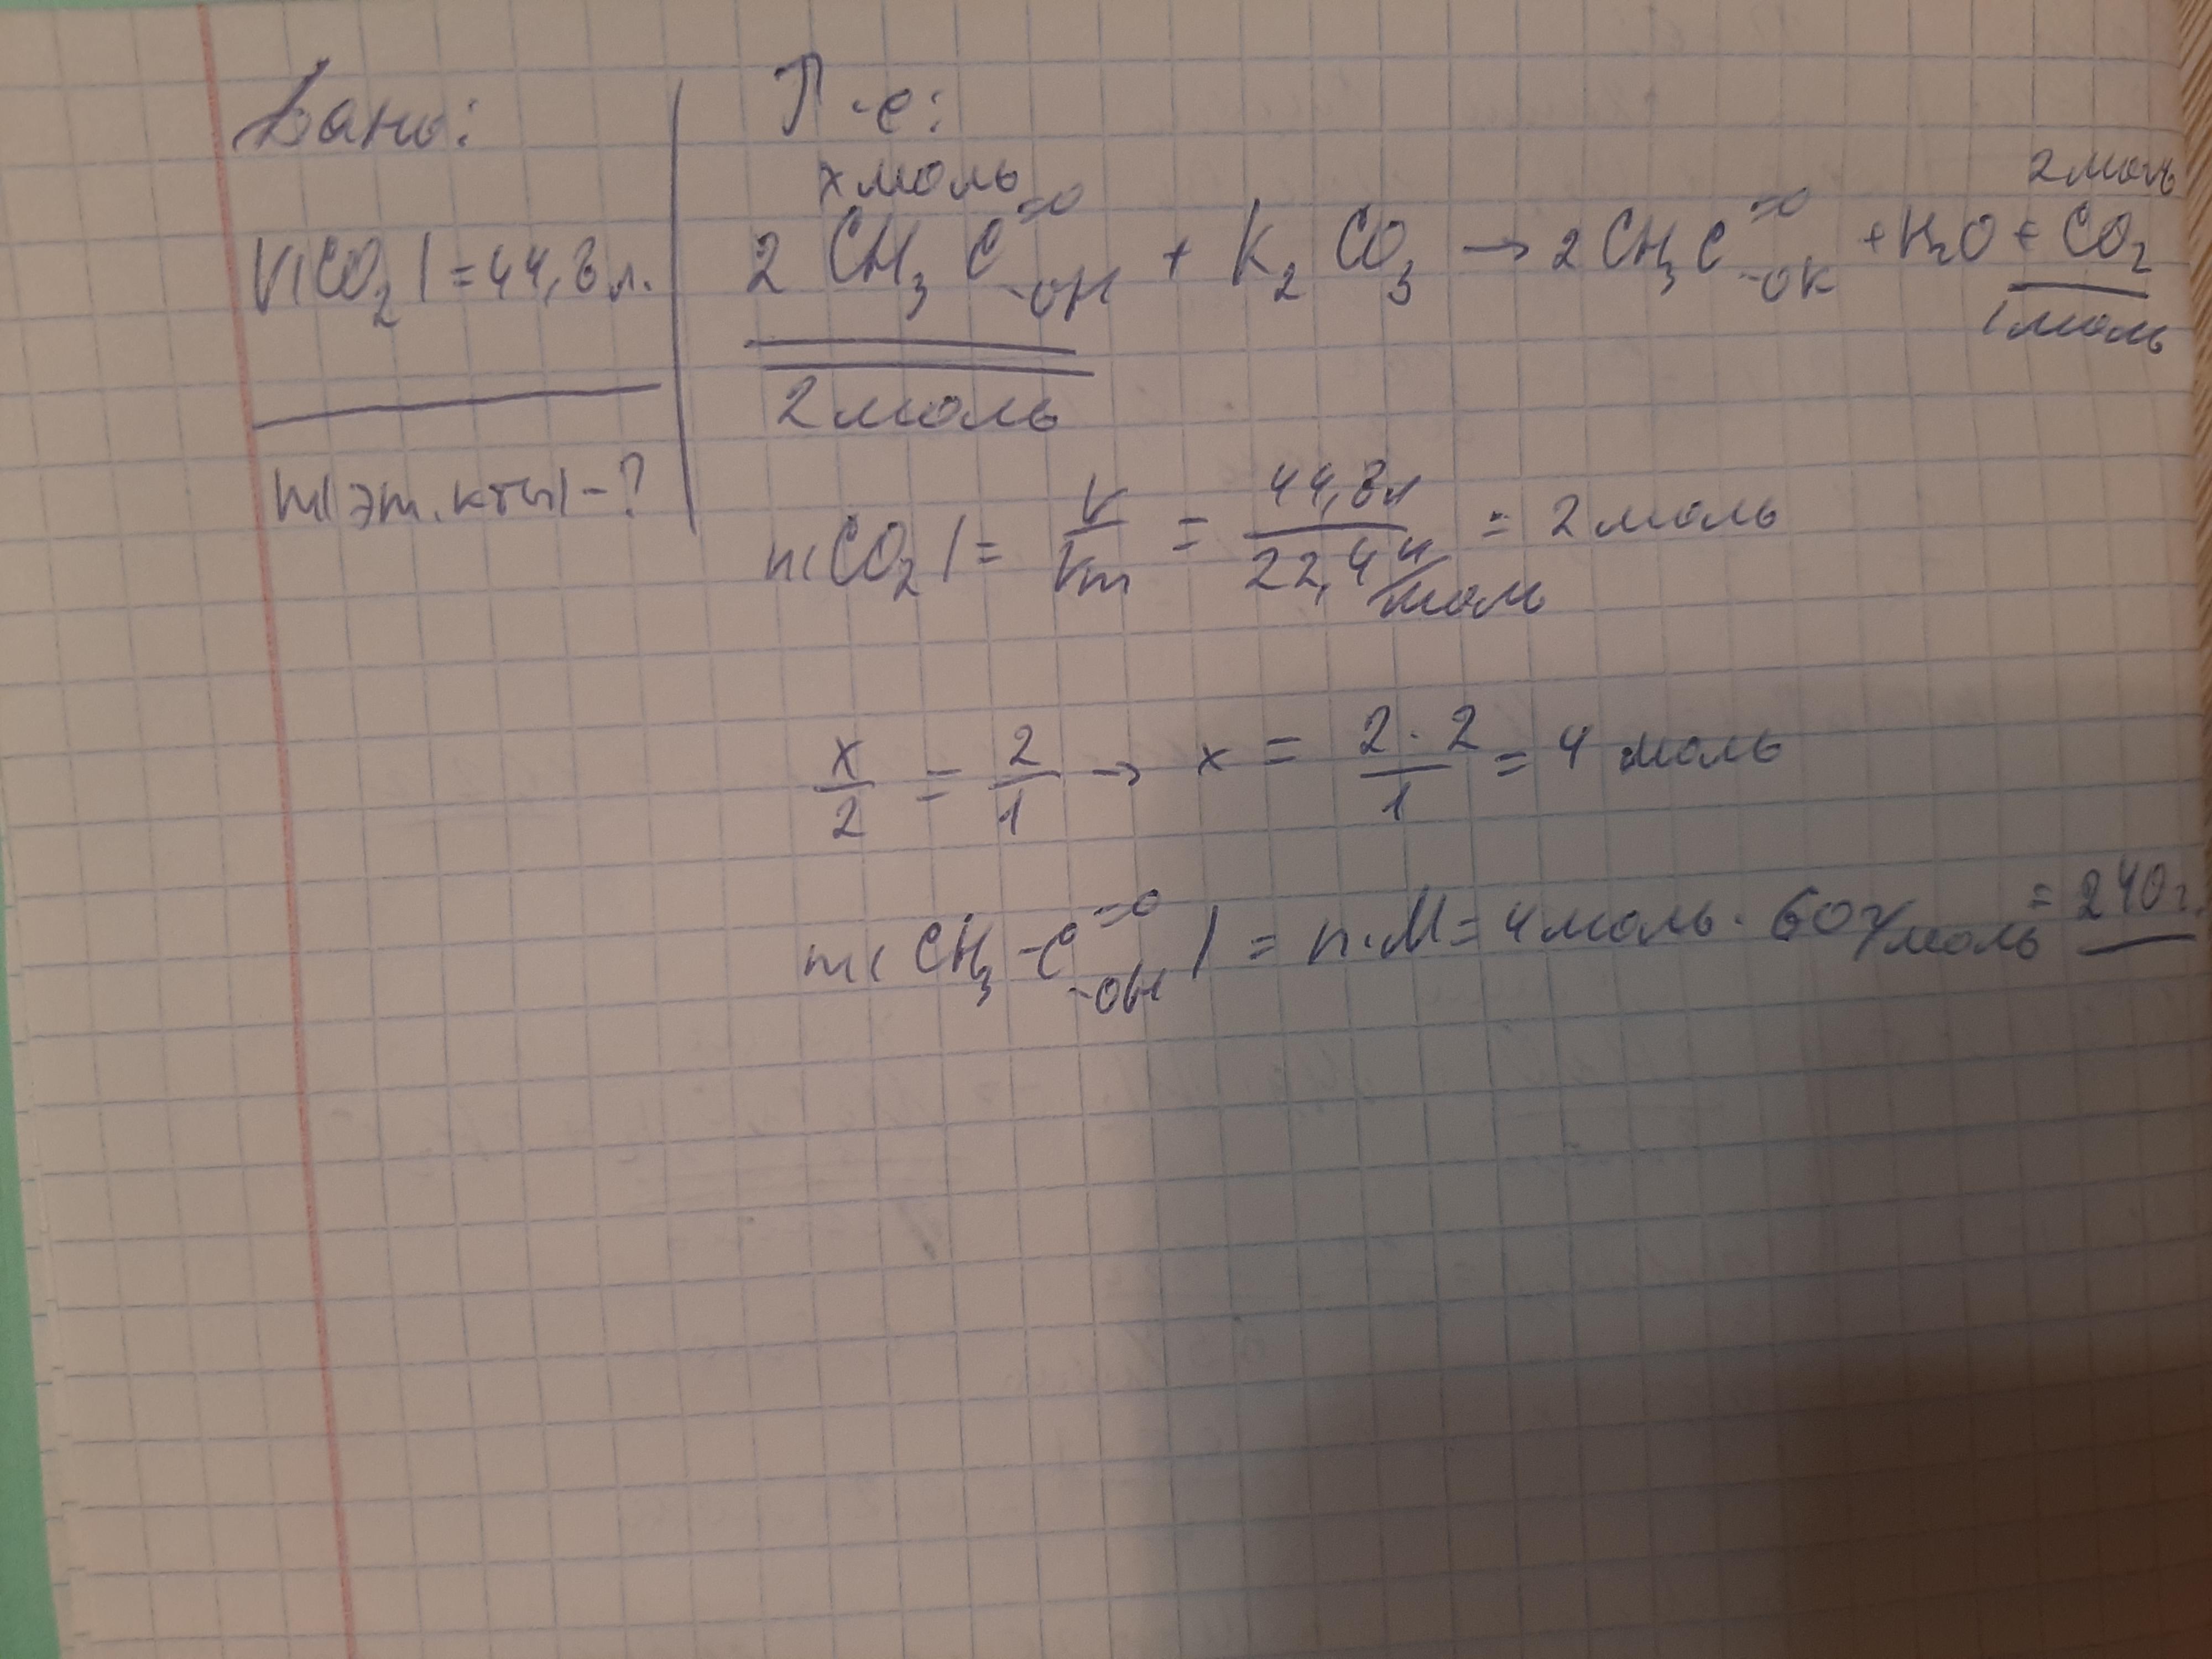 Дано:
V(CO₂) = 44,8 л.
m(эт. к-ты) - ?
Р-е:
x моль
2 моль
2 CH₃C=O-OH + K₂CO₃ → 2CH₃C=O-OK + H₂O + CO₂
2 моль
1 моль
n(CO₂) = V/Vm = 44,8 л/22,4 л/моль = 2 моль
x/2 = 2/1 → x = 2·2/1 = 4 моль
m(CH₃-C=O-OH) = n·M = 4 моль · 60 г/моль = 240 г.